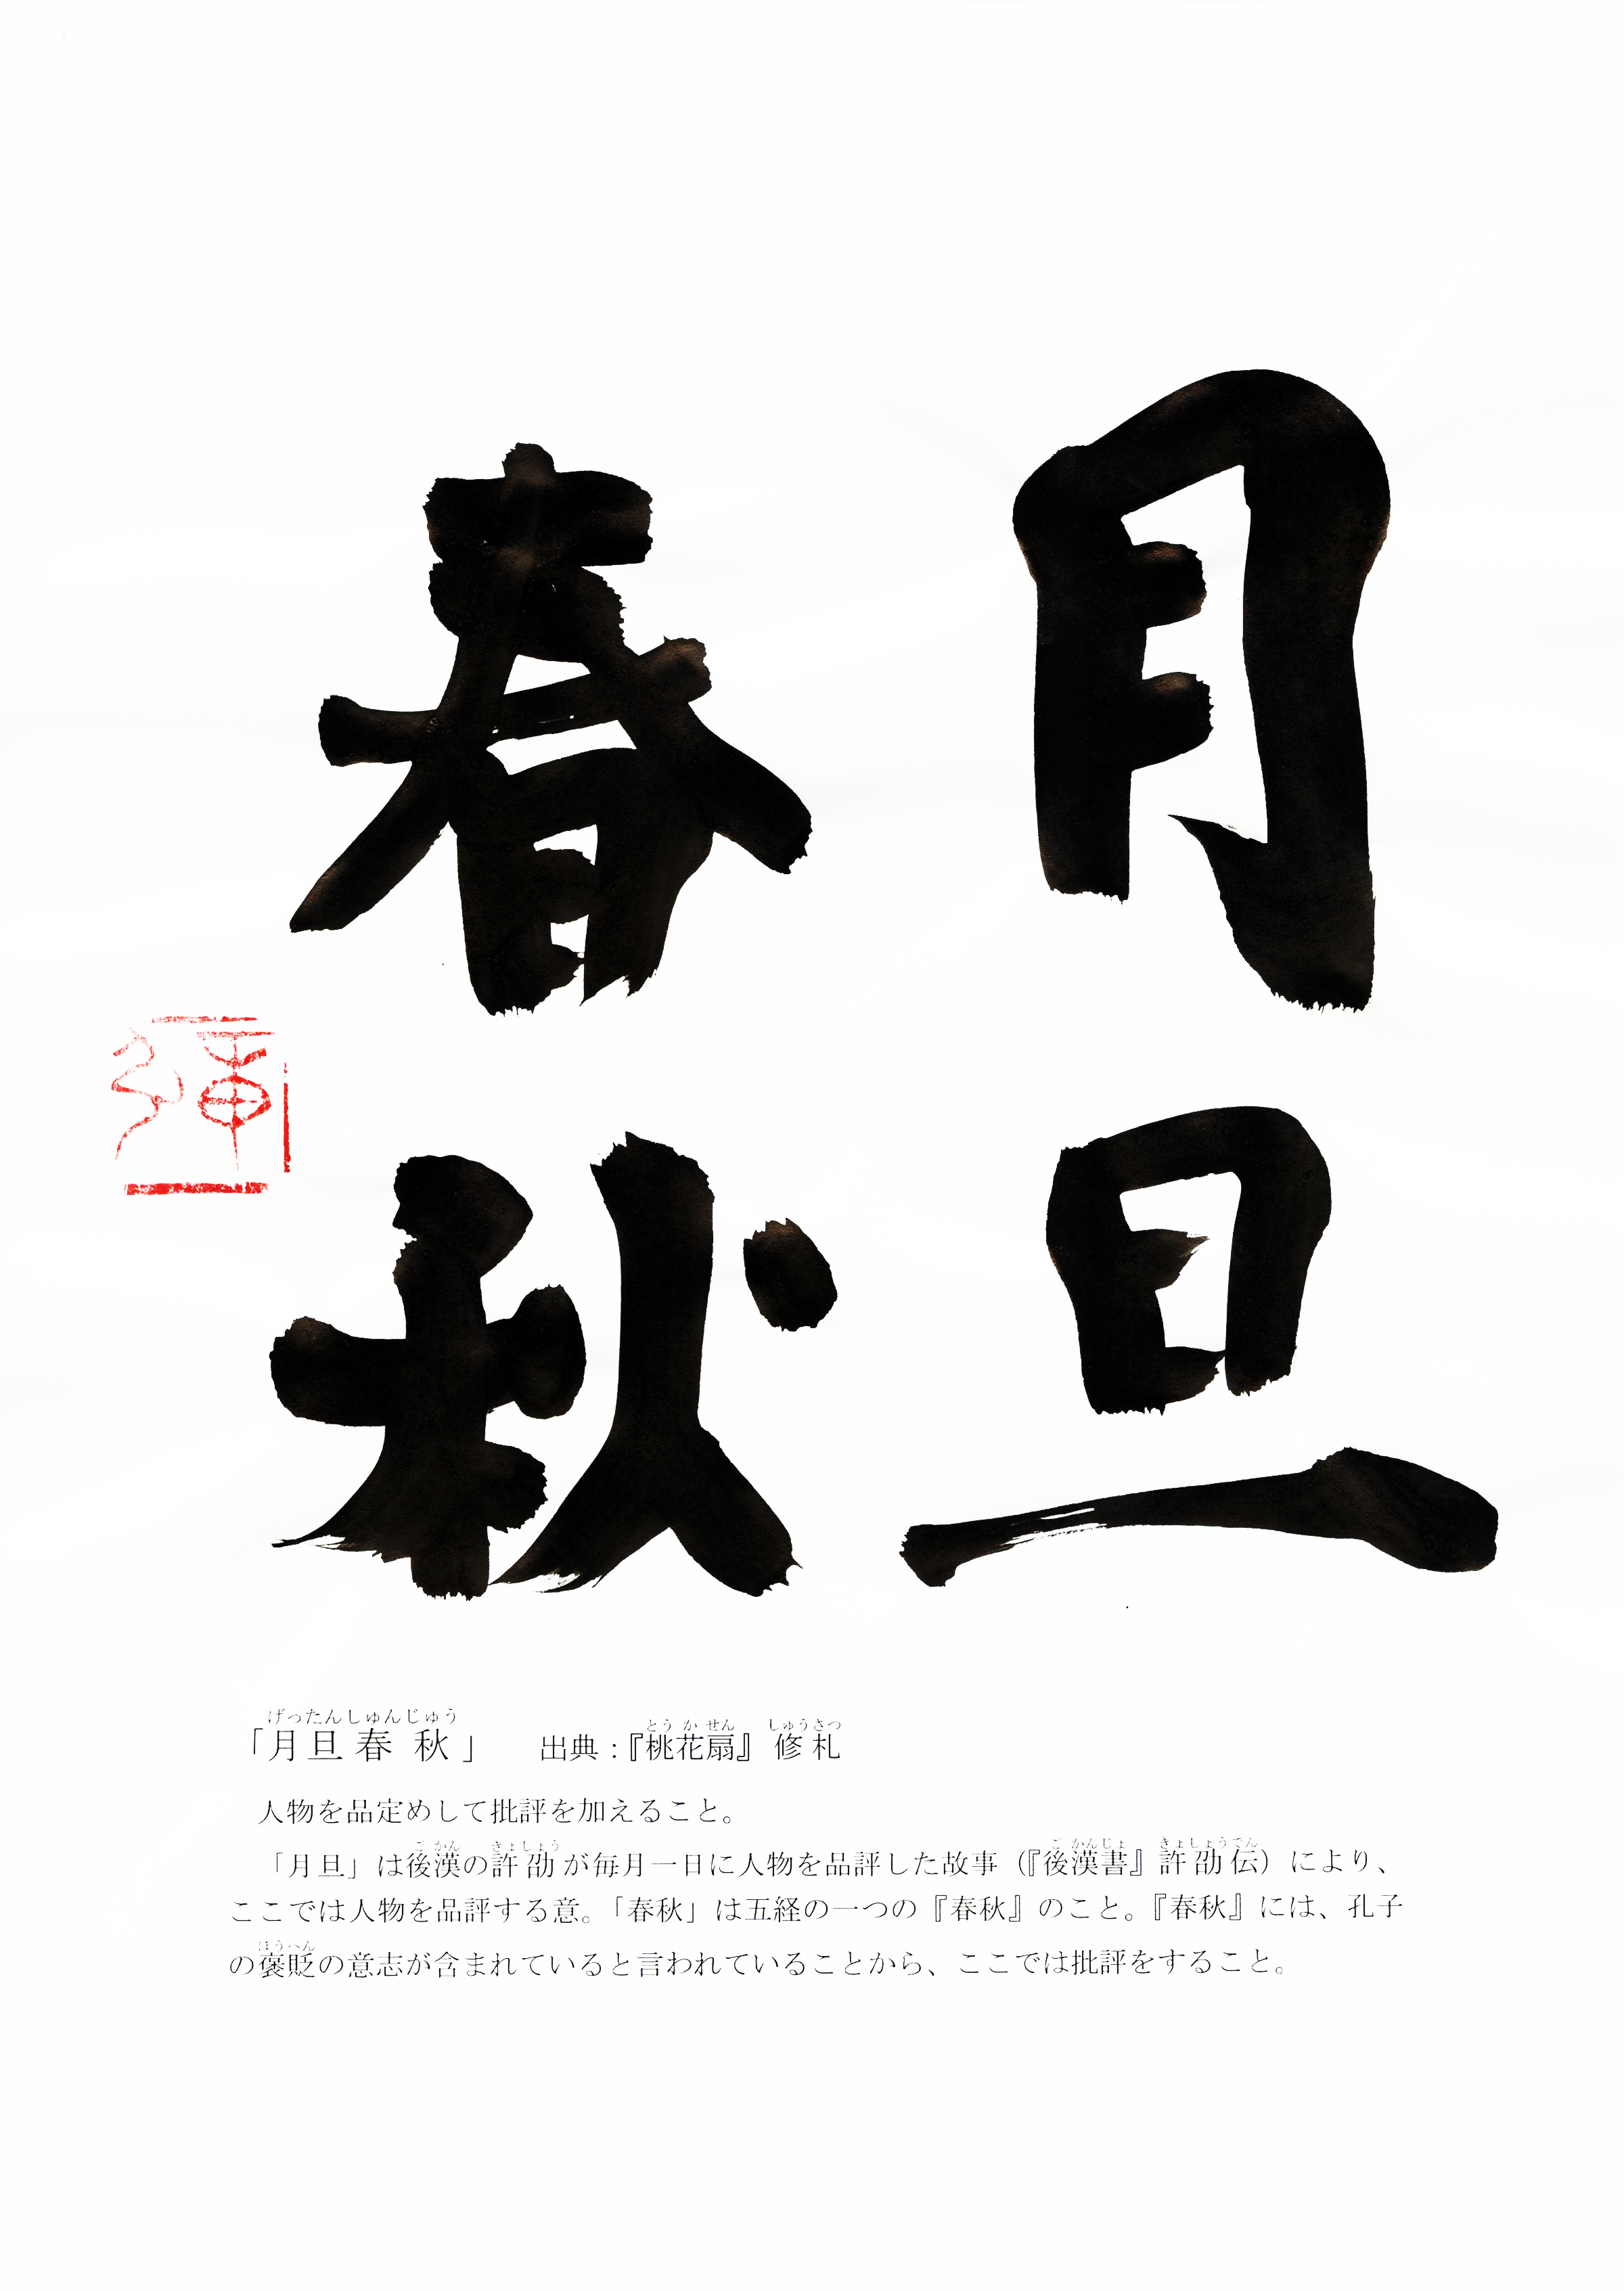 月旦
春秋
げったんしゅんじゅう とうかせん しゅうさつ
「月旦春秋」 出典:『桃花扇』修札
人物を品定めして批評を加えること。
ごかん きょしょう ごかんじょ きょしょうでん
「月旦」は後漢の許劭が毎月一日に人物を品評した故事(『後漢書』許劭伝)により、
ここでは人物を品評する意。「春秋」は五経の一つの『春秋』のこと。『春秋』には、孔子
ほうへん
の褒貶の意志が含まれていると言われていることから、ここでは批評をすること。